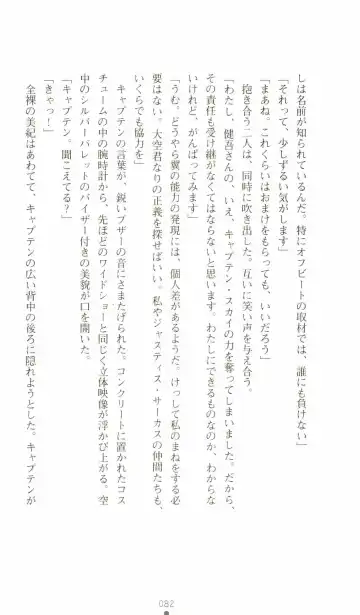 しは名前が知られているんだ。特にオフビートの取材では、誰にも負けない」
「それって、少しずるい気がします」
「まあね。これくらいはおまけをもらっても、いいだろう」
抱き合う二人は、同時に吹き出した。互いに笑い声を与え合う。
「わたし、健吾さんの、いえ、キャプテン・スカイの力を奪ってしまいました。だから、
その責任も受け継がなくてはならないと思います。わたしにできるものなのか、わからな
いけれど、がんばってみます」
「うむ、どうやら翼の能力の発現には、個人差があるようだ。けっして私のまねをする必
要はない。大空君なりの正義を探せばいい。私やジャスティス・サーカスの仲間たちも、
いくらでも協力を」
キャプテンの言葉が、鋭いブザーの音にさまたげられた。コンクリートに置かれたコス
チュームの中の腕時計から、先ほどのワイドショーと同じく立体映像が浮かび上がる。空
中のシルバーバレットのバイザー付きの美貌が口を開いた。
「キャプテン。聞こえてる？」
「きゃっ！」
全裸の美紀はあわてて、キャプテンの広い背中の後ろに隠れようとした。キャプテンが
082